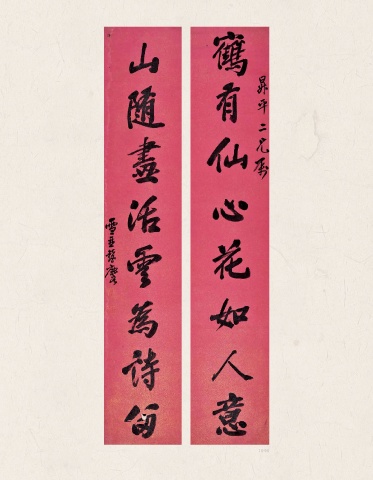 鶴有仙心花如人意
昇平二兄屬
山随畫活雲為詩留